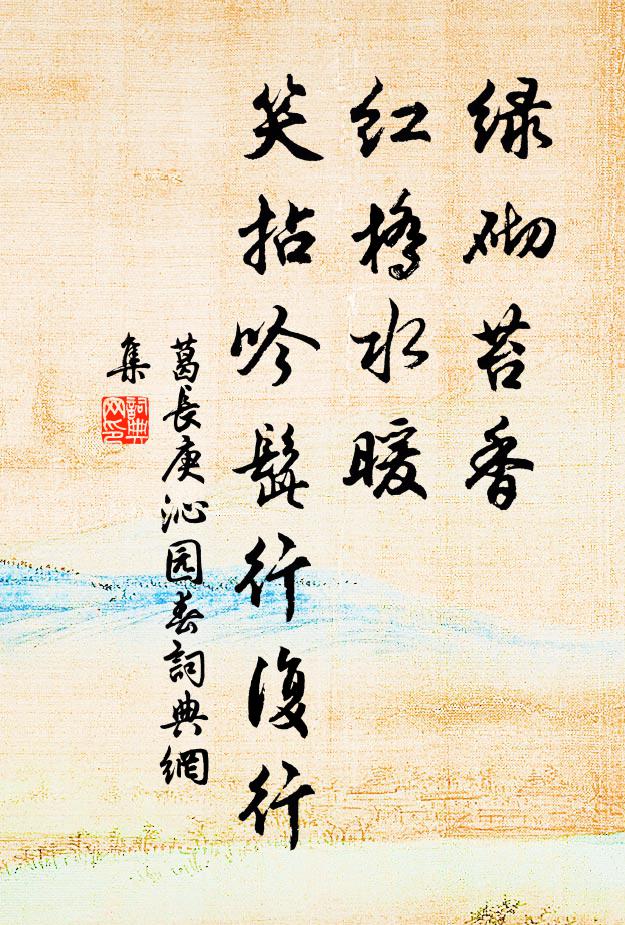 绿砌苔香
红桥水暖
笑拈吟髭行復行
葛長庚沁园春詞典網
集
詞典
网印